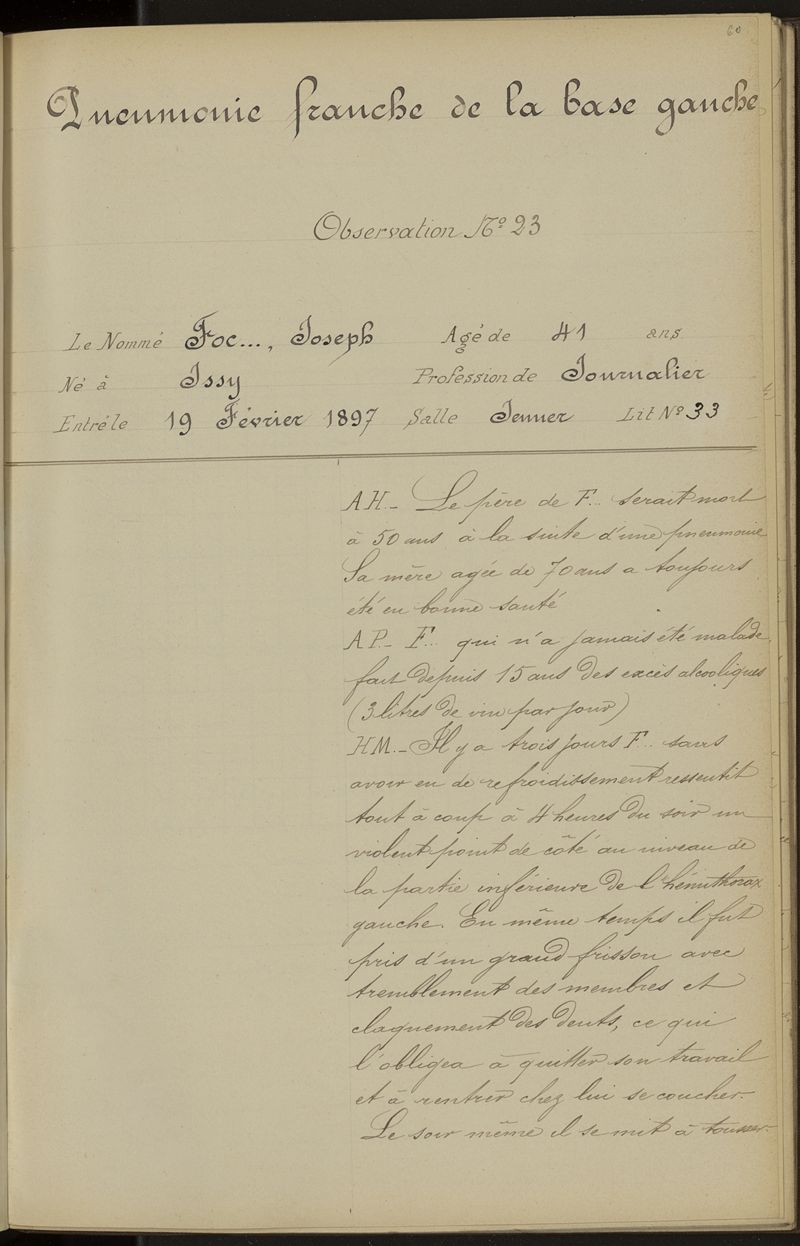 60
Pneumonie franche de la base gauche
Observation No 23
Le Nommé Foc..., Joseph Agé de 41 ans
Né à Issy Profession de Journalier
Entré le 19 Février 1897 Salle Jenner Lit No 33
AH._ Le père de F... serait mort
à 50 ans à la suite d'une pneumonie
Sa mère agée de 70 ans a toujours
été en bonne santé
AP._ F... qui n'a jamais été malade
fait depuis 15 ans des excès alcooliques
(3 litres de vin par jour)
HM._ Il y a trois jours F... sans
avoir eu de refroidissement ressentit
tout à coup à 4 heures du soir un
violent point de côté au niveau de
la partie inférieure de l'hémithorax
gauche. En même temps il fut
pris d'un grand frisson avec
tremblement des membres et
claquement des dents, ce qui
l'obligea à quitter son travail
et à rentrer chez lui se coucher._
Le soir même il se mit à tousser._